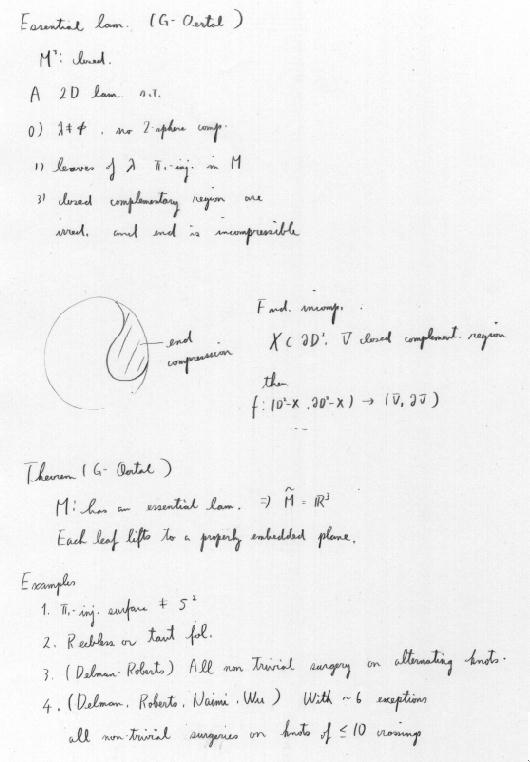 Essential lam. (G-Oertel)
M³: closed.
A 2D lam. s.t.
0) λ ≠ φ, no 2-sphere comp.
1) leaves of λ π₁-inj. in M
3) closed complementary region are
irred. and end is incompressible
end
compression
End. incomp.
X ⊂ ∂D², V̄ closed complement. region
then
f: (D²-X, ∂D²-X) → (V̄, ∂V̄)
--
Theorem (G-Oertal)
M: has an essential lam. ⇒ M̃ = ℝ³
Each leaf lifts to a properly embedded plane.
Examples
1. π₁-inj. surface ≠ S²
2. Reebless or taut fol.
3. (Delman-Roberts) All non trivial surgery on alternating knots.
4. (Delman, Roberts, Naimi, Wu) With ~6 exeptions
all non-trivial surgeries on knots of ≤ 10 crossings